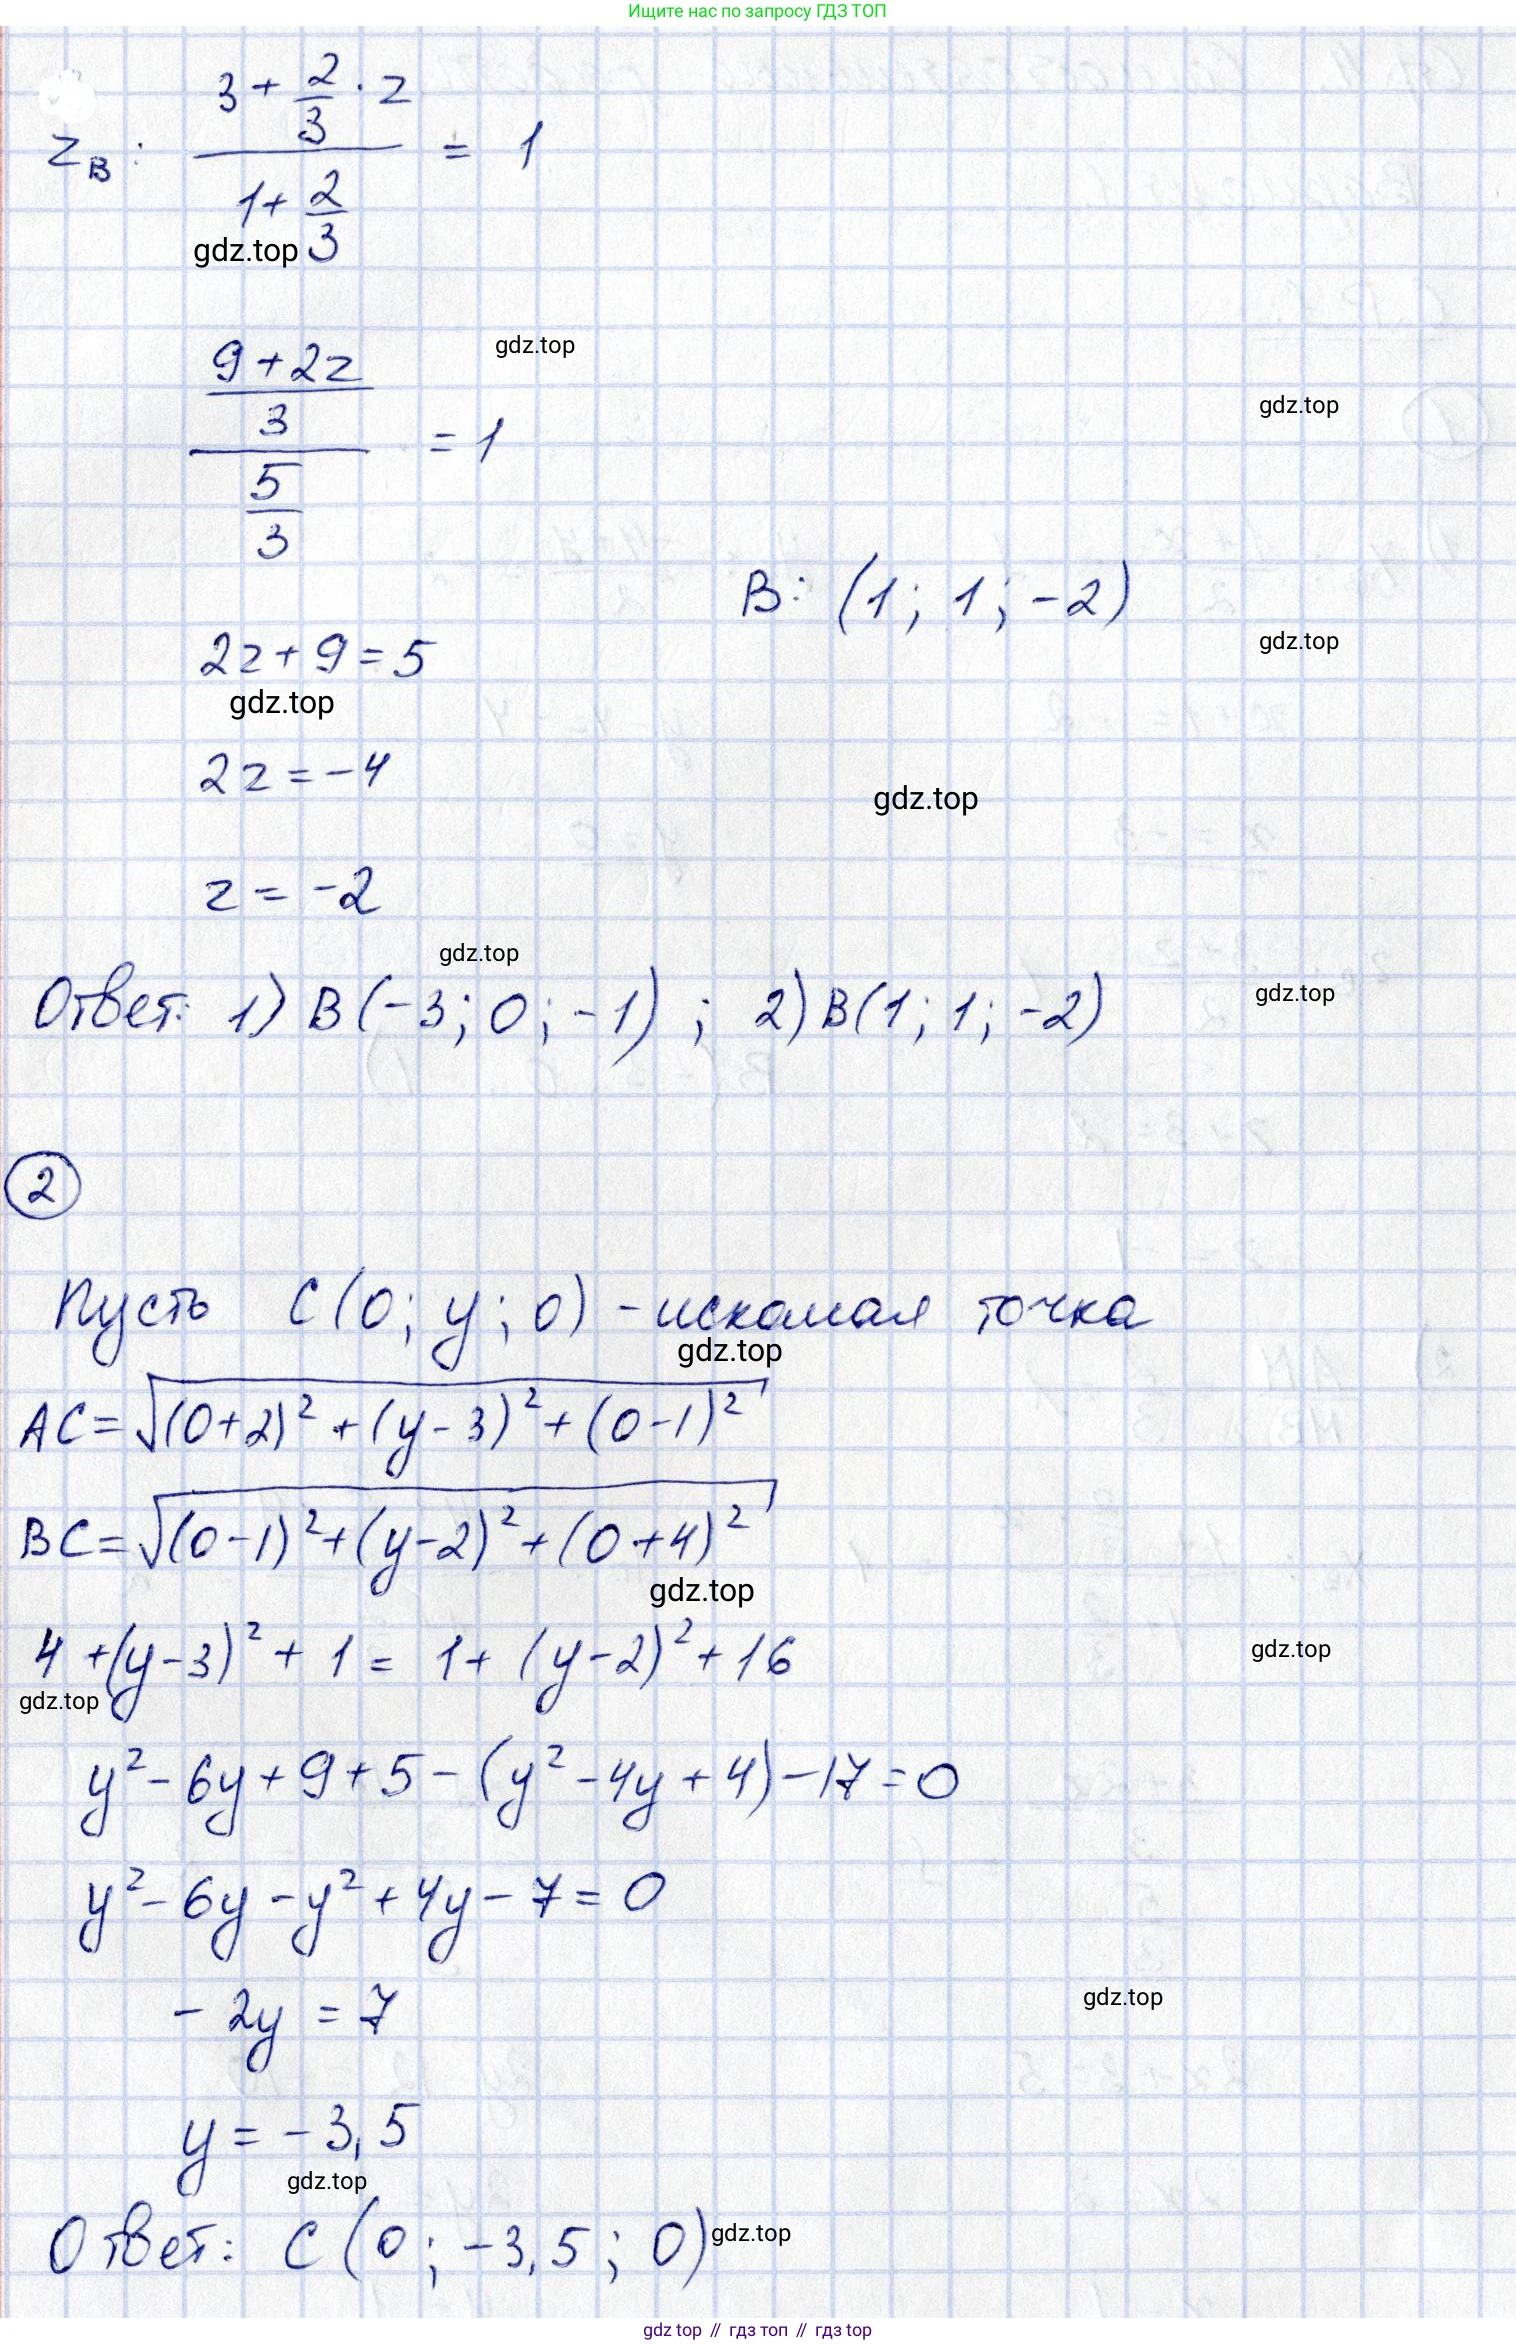 Ищите нас по запросу ГДЗ ТОП
z_B: (3 + 2/3 · z) / (1 + 2/3) = 1
gdz.top
gdz.top
((9 + 2z)/3) / (5/3) = 1
gdz.top
B: (1; 1; -2)
2z + 9 = 5
gdz.top
gdz.top
2z = -4
gdz.top
z = -2
gdz.top
Ответ: 1) B(-3; 0; -1); 2) B(1; 1; -2)
gdz.top
2
Пусть C(0; y; 0) - искомая точка
gdz.top
AC = √((0+2)² + (y-3)² + (0-1)²)
BC = √((0-1)² + (y-2)² + (0+4)²)
gdz.top
4 + (y-3)² + 1 = 1 + (y-2)² + 16
gdz.top
gdz.top
y² - 6y + 9 + 5 - (y² - 4y + 4) - 17 = 0
y² - 6y - y² + 4y - 7 = 0
-2y = 7
gdz.top
y = -3,5
gdz.top
Ответ: C(0; -3,5; 0)
gdz.top
gdz top // гдз топ // гдз top